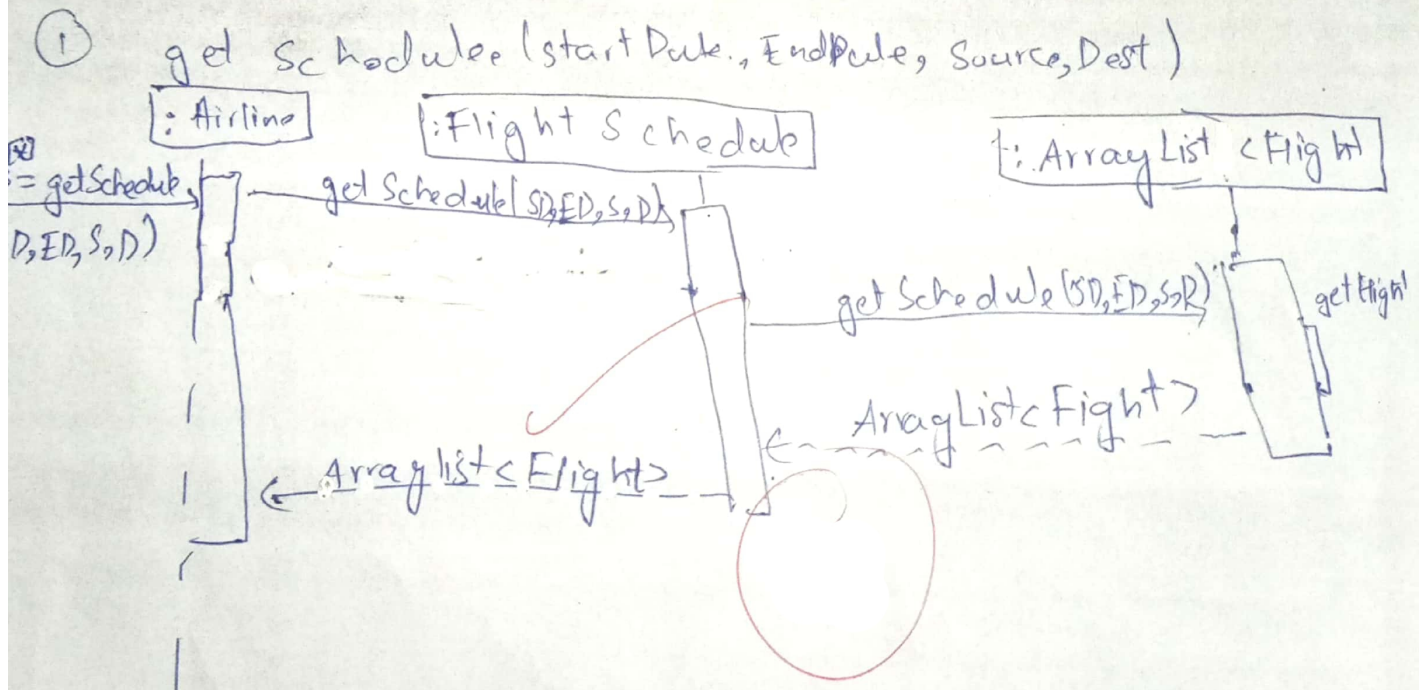 ① get Schedulee (start Date., EndDate, Source, Dest)
: Airline
: Flight Schedule
: ArrayList <Flight
:= getSchedule
D, ED, S, D)
get Schedule( SD, ED, S, D)
get Schedule (SD, ED, S, R)
getFligh
ArrayList< Fight >
Arraylist < Flight >